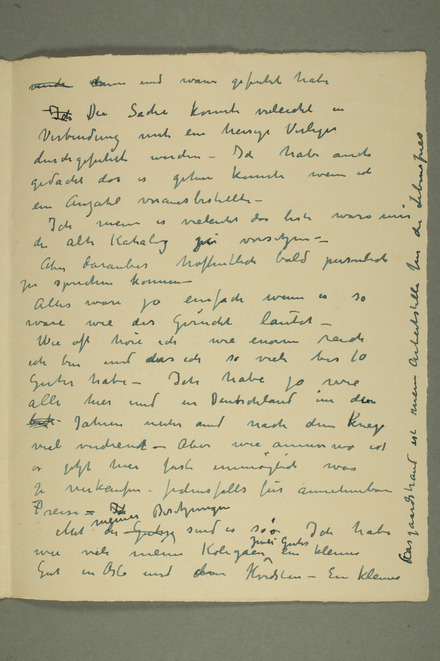 dann und wann gefuhlt habe
Die Sache konnte vieleicht in
Verbindung mit ein hiesige Verleger
durchgefuhrt werden – Ich habe auch
gedacht das es gehen konnte wenn ich
ein Anzahl vorausbestellte –
Ich meine es vieleicht das beste ware mir
die alte Katalog zu vorsetzen –
Aber daruber hoffentlich bald personlich
zu sprechen konnen
Alles ware ja einfach wenn es so
ware wie das Gerucht lautet –
Wie oft höre ich wie enorm reich
ich bin und das ich so viele bis 10
Guter habe – Ich habe ja wie
alle hier und in Deutschland in den
Jahren unter und nach dem Krieg
viel verdient – Aber wie immer wo ich
es jetzt hier fast unmöglich was
zu verkaufen – jedenfalls fur annehmbare
Preise –
Mit meinen Besitzungen sind es so: Ich habe
wie viele meine Kollegaen zwei Guter ein kleines
Gut in Aas und Hvidsten – Ein kleines
Aasgaardstrand ist mein Arbeitstelle